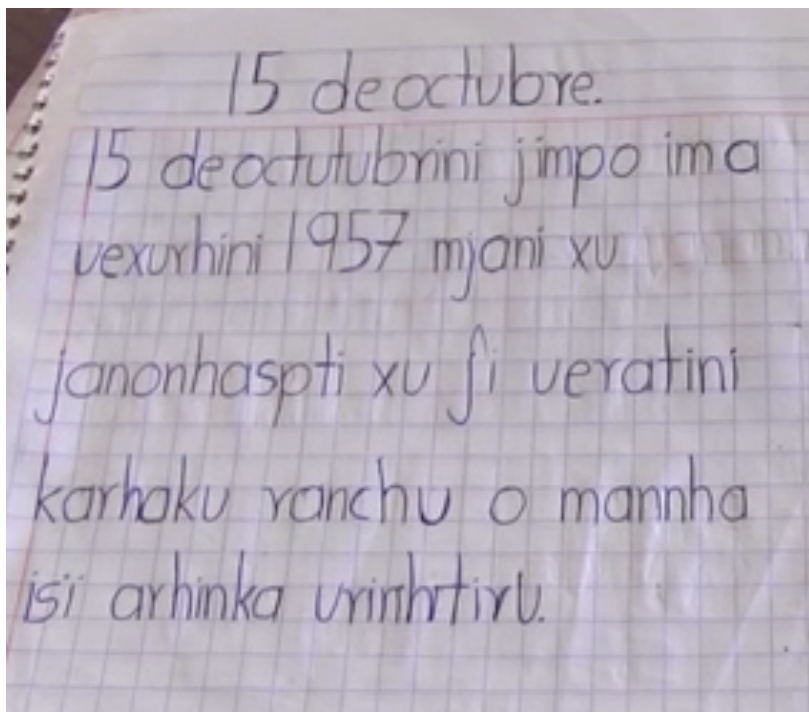 15 de octubre.
15 de octutubrini jimpo ima
vexurhini 1957 mjani xu
janonhaspti xu ʃi veratini
karhaku ranchu o mannha
isi arhinka urinhrtiru.